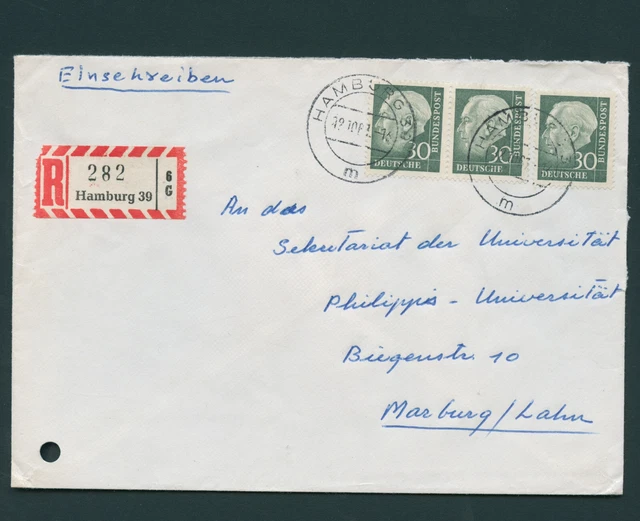 Einschreiben
HAMBURG 39
m
HAMBURG 39
m
30
DEUTSCHE
BUNDESPOST
30
DEUTSCHE
BUNDESPOST
30
DEUTSCHE
BUNDESPOST
R
282
Hamburg 39
6
G
An das
Sekretariat der Universität
Philipps - Universität
Biegenstr. 10
Marburg/Lahn